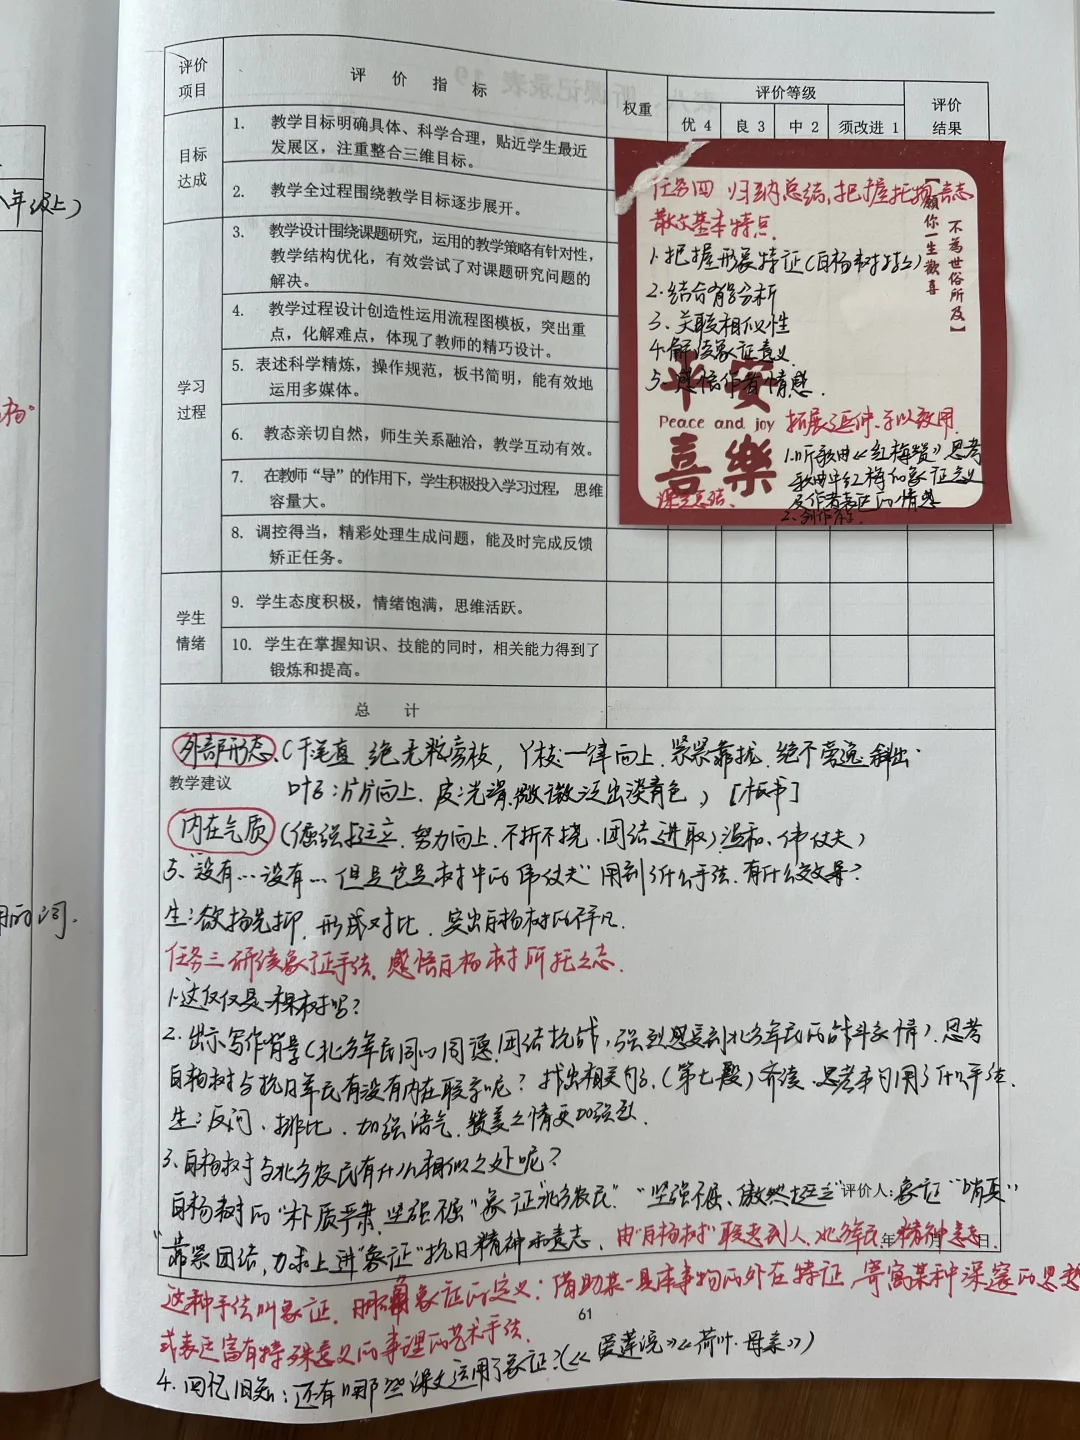 评价项目
评价指标
权重
评价等级
优4 良3 中2 须改进1
评价结果
目标达成
1. 教学目标明确具体、科学合理，贴近学生最近
发展区，注重整合三维目标。
2. 教学全过程围绕教学目标逐步展开。
学习过程
3. 教学设计围绕课题研究，运用的教学策略有针对性，
教学结构优化，有效尝试了对课题研究问题的
解决。
4. 教学过程设计创造性运用流程图模板，突出重
点，化解难点，体现了教师的精巧设计。
5. 表述科学精炼，操作规范，板书简明，能有效地
运用多媒体。
6. 教态亲切自然，师生关系融洽，教学互动有效。
7. 在教师“导”的作用下，学生积极投入学习过程，思维
容量大。
8. 调控得当，精彩处理生成问题，能及时完成反馈
矫正任务。
学生情绪
9. 学生态度积极，情绪饱满，思维活跃。
10. 学生在掌握知识、技能的同时，相关能力得到了
锻炼和提高。
总计
任务四 归纳总结，把握托物言志
散文基本特点
1.把握形象特征(白杨树特点)
2.结合背景分析
3.关联相似性
4.解读象征意义
5.感悟作者情感.
拓展延伸，学以致用
1.听歌曲《红梅赞》思考
歌曲中红梅的象征意义
及作者表达的情感
2.创作
课堂总结、
【願你一生歡喜
不為世俗所及】
平安
Peace and joy
喜樂
外部形态、(干:笔直 绝无旁枝，丫枝:一律向上.紧紧靠拢.绝不旁逸斜出.
教学建议
叶子:片片向上.皮:光滑，微微泛出淡青色）[板书]
内在气质(倔强挺立、努力向上、不折不挠、团结进取)温和、伟丈夫)
5、“没有…没有…但是它是树中的伟丈夫”用到了什么手法.有什么效果?
生:欲扬先抑.形成对比.突出白杨树的不平凡.
任务三 研读象征手法.感悟白杨树所托之志.
1.这仅仅是一棵树吗?
2.出示写作背景(北方军民同心同德.团结抗战,强烈感受到北方军民的战斗豪情).思考
白杨树与抗日军民有没有内在联系呢?找出相关句子.(第七段)齐读.思考本句用了什么手法.
生:反问、排比.加强语气.赞美之情更加强烈.
3.白杨树与北方农民有什么相似之处呢?
白杨树的“朴质严肃.坚强不屈”象征“北方农民”.“坚强不屈、傲然挺立”象征“哨兵”
评价人：
“靠紧团结,力求上进”象征“抗日精神和意志.由“白杨树”联想到人.北方军民.精神意志.
年 月 日
这种手法叫象征.明确象征的定义:借助某一具体事物的外在特征.寄寓某种深邃的思想
或表达富有特殊意义的事理的艺术手法.
61
4.回忆旧知:还有哪些课文运用了象征?(《爱莲说》《荷叶·母亲》)
八年级上)
杨.
用的词.